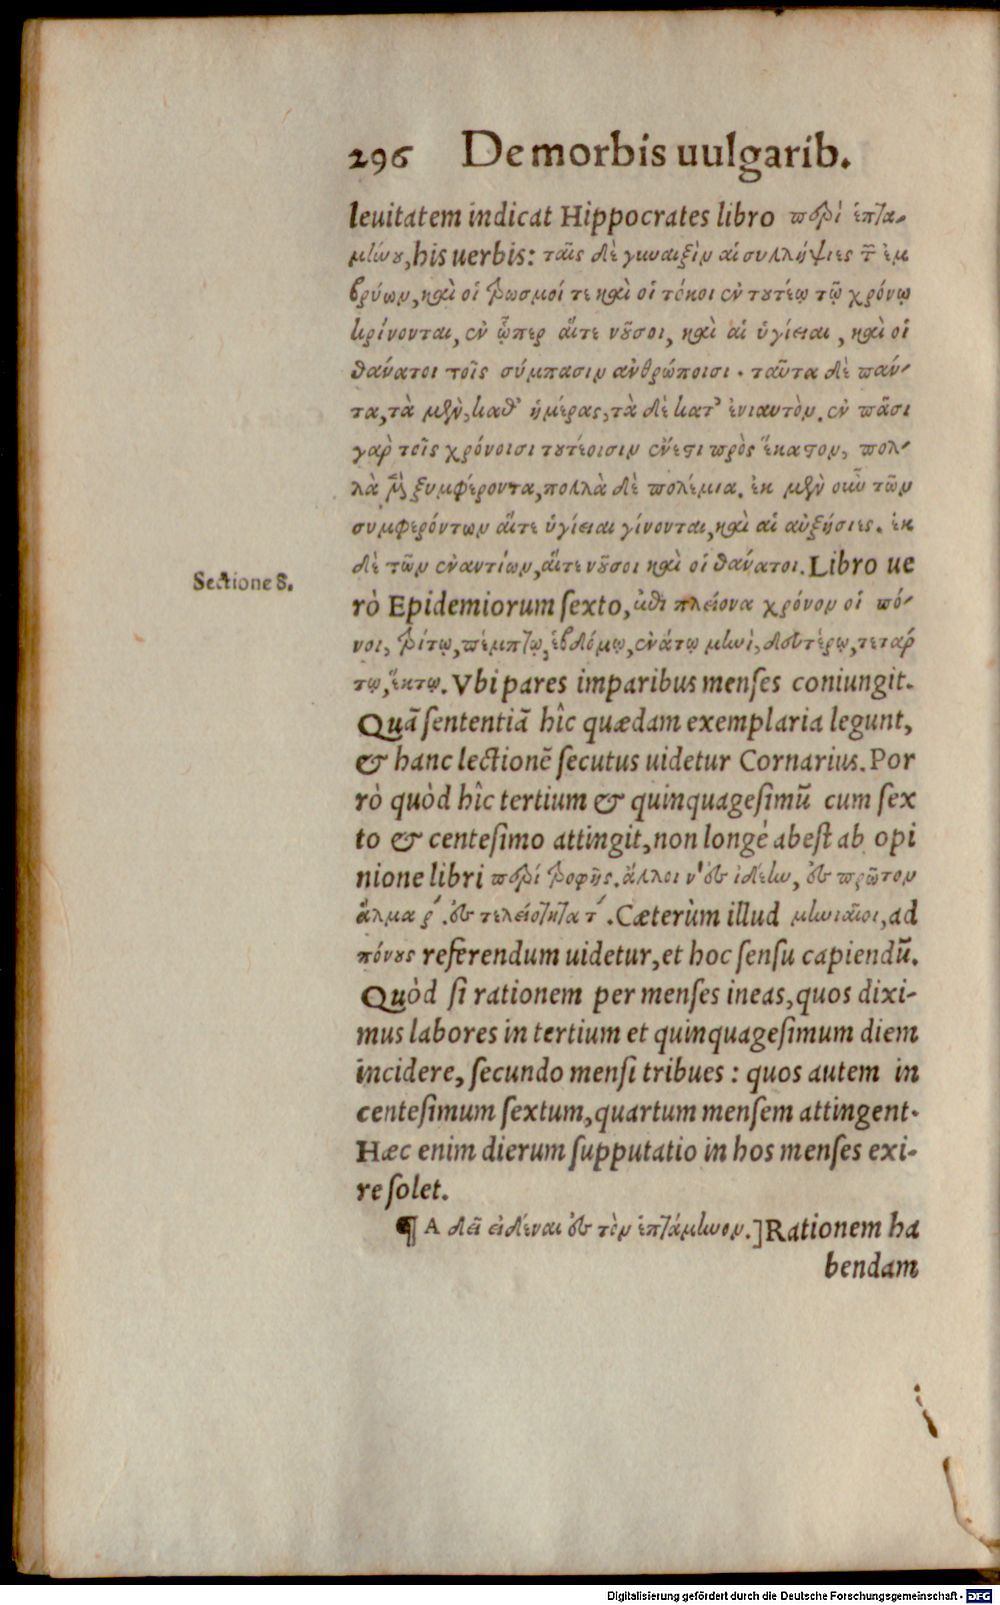 296 De morbis uulgarib.
leuitatem indicat Hippocrates libro περὶ ἑπτα-
μήνου, his uerbis: ταῖς δὲ γυναιξὶν αἱ συλλήψιες τ῀ ἐμ
βρύων, καὶ οἱ τρωσμοί τε καὶ οἱ τόκοι ἐν τουτέῳ τῷ χρόνῳ
κρίνονται, ἐν ᾧπερ αἵτε νοῦσοι, καὶ αἱ ὑγίειαι, καὶ οἱ
θάνατοι τοῖς σύμπασιν ἀνθρώποισι. ταῦτα δὲ πάν-
τα, τὰ μὲν, καθ’ ἡμέρας, τὰ δὲ κατ’ ἐνιαυτὸν. ἐν πᾶσι
γὰρ τοῖς χρόνοισι τουτέοισιν ἔνεστι πρὸς ἕκαστον, πολ-
λὰ μὲν ξυμφέροντα, πολλὰ δὲ πολέμια. ἐκ μὲν οὖν τῶν
συμφερόντων αἵτε ὑγίειαι γίνονται, καὶ αἱ αὐξήσιες. ἐκ
δὲ τῶν ἐναντίων, αἵτε νοῦσοι καὶ οἱ θάνατοι. Libro ue
Sectione 8.
rò Epidemiorum sexto, πλείονα χρόνον οἱ πό-
νοι, τρίτῳ, πέμπτῳ, ἑβδόμῳ, ἐνάτῳ μηνὶ, δευτέρῳ, τετάρ
τῳ, ἕκτῳ. Vbi pares imparibus menses coniungit.
Quā sententiā hîc quædam exemplaria legunt,
& hanc lectionē secutus uidetur Cornarius. Por
rò quòd hîc tertium & quinquagesimū cum sex
to & centesimo attingit, non longè abest ab opi
nione libri περὶ τροφῆς. ἄλλοι ν' ἐς ἰδέην, ἐς πρῶτον
ἅλμα ρ'. ἐς τελειότητα τ'. Cæterùm illud μηνιαῖοι, ad
πόνους referendum uidetur, et hoc sensu capiendū.
Quòd si rationem per menses ineas, quos dixi-
mus labores in tertium et quinquagesimum diem
incidere, secundo mensi tribues: quos autem in
centesimum sextum, quartum mensem attingent.
Hæc enim dierum supputatio in hos menses exi-
re solet.
¶ A δεῖ εἰδέναι ἐς τὸν ἑπτάμηνον.] Rationem ha
bendam
Digitalisierung gefördert durch die Deutsche Forschungsgemeinschaft - DFG